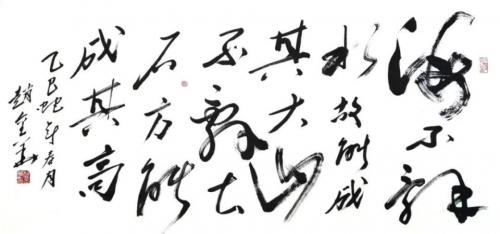 海不辞
水故能成
其大山
不辞土
石方能
成其高
乙巳蛇年春月
趙金